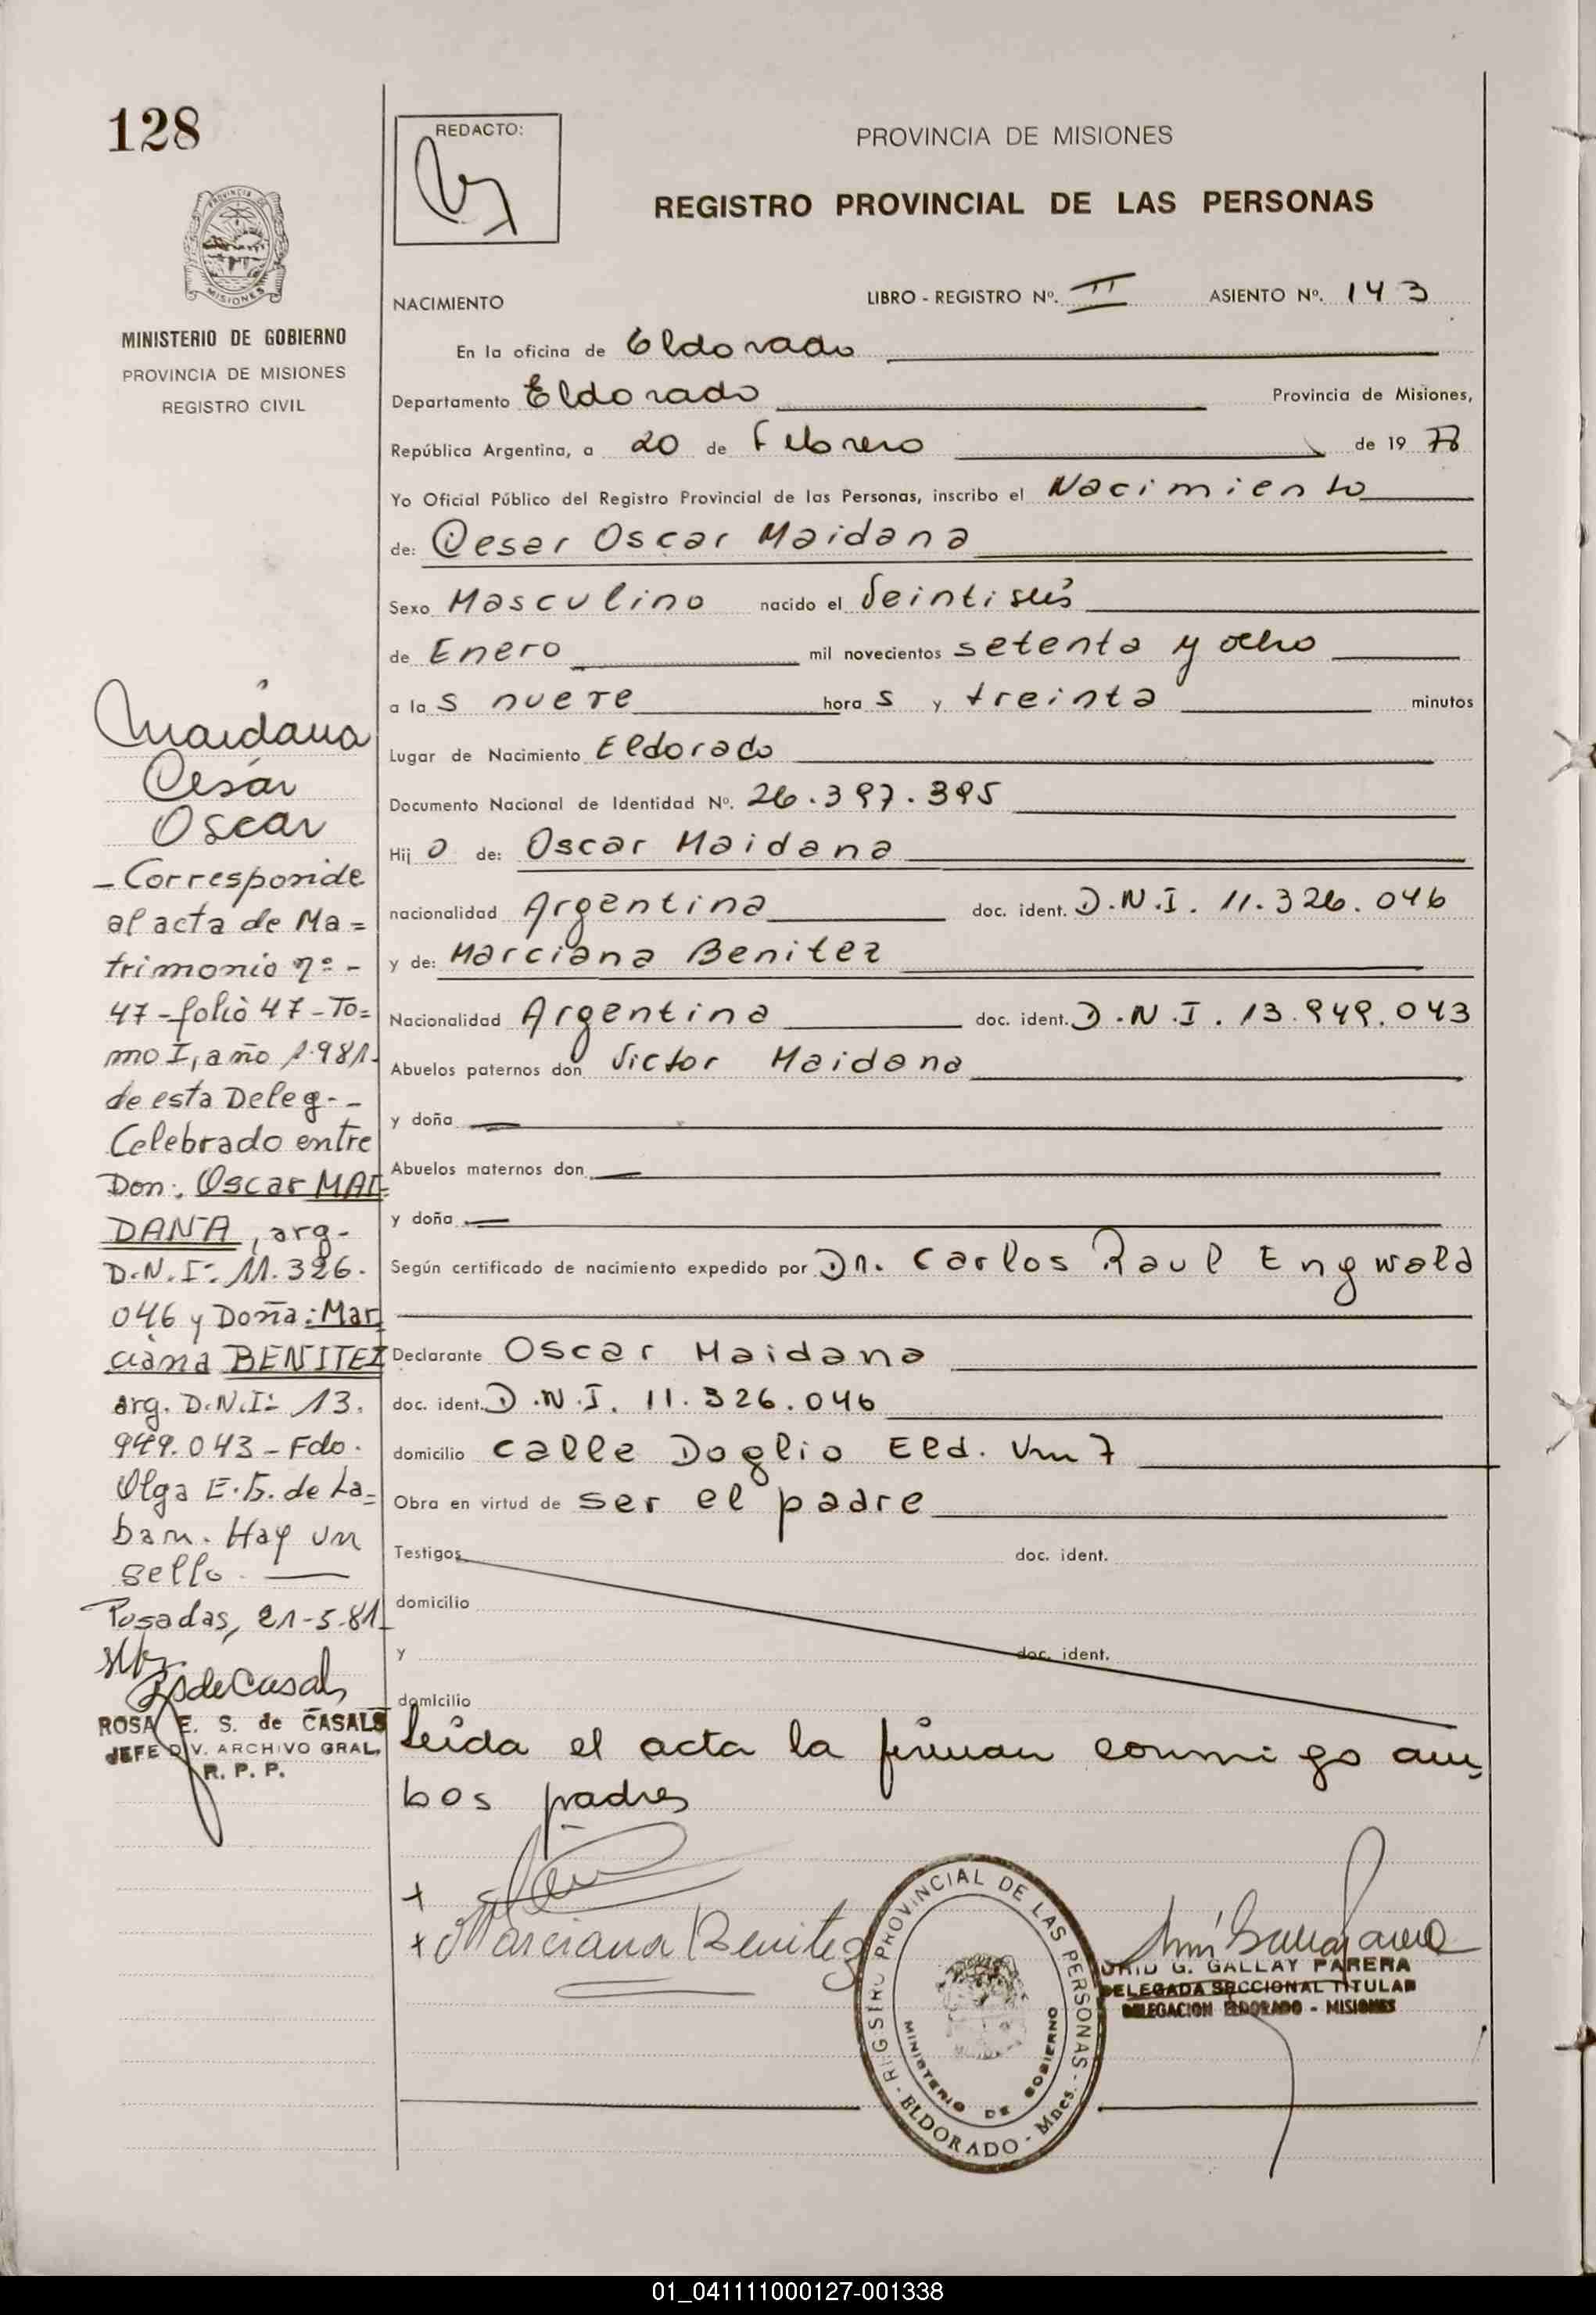 128
PROVINCIA DE
MISIONES
MINISTERIO DE GOBIERNO
PROVINCIA DE MISIONES
REGISTRO CIVIL
Maidana
Cesár
Oscar
- Corresponde
al acta de Ma=
trimonio nº -
47 - folio 47 - To=
mo I, año 1.981.
de esta Deleg.-
Celebrado entre
Don: Oscar MAI=
DANA, arg-
D.N.I: 11.326.
046 y Doña: Mar
ciana BENITEZ
arg. D.N.I: 13.
949.043 - Fdo.
Olga E. G. de La=
bam. Hay un
sello.
Posadas, 21-5-81
ROSA E. S. de CASALS
JEFE DIV. ARCHIVO GRAL.
R. P. P.
REDACTO:
PROVINCIA DE MISIONES
REGISTRO PROVINCIAL DE LAS PERSONAS
NACIMIENTO LIBRO - REGISTRO Nº. II ASIENTO Nº. 143
En la oficina de Eldorado
Departamento Eldorado Provincia de Misiones,
República Argentina, a 20 de Febrero de 19 78
Yo Oficial Público del Registro Provincial de las Personas, inscribo el Nacimiento
de: Cesar Oscar Maidana
Sexo Masculino nacido el Veintiseis
de Enero mil novecientos setenta y ocho
a la s nueve hora s y treinta minutos
Lugar de Nacimiento Eldorado
Documento Nacional de Identidad Nº. 26.397.395
Hij o de: Oscar Maidana
nacionalidad Argentina doc. ident. D.N.I. 11.326.046
y de: Marciana Benitez
Nacionalidad Argentina doc. ident. D.N.I. 13.949.043
Abuelos paternos don Victor Maidana
y doña
Abuelos maternos don
y doña
Según certificado de nacimiento expedido por Dr. Carlos Raul Engwald
Declarante Oscar Maidana
doc. ident. D.N.I. 11.326.046
domicilio calle Doglio Eld. Km 7
Obra en virtud de ser el padre
Testigos doc. ident.
domicilio
y doc. ident.
domicilio
Leida el acta la firman conmigo am=
bos padres
+
+ Marciana Benitez
REGISTRO PROVINCIAL DE LAS PERSONAS
MINISTERIO DE GOBIERNO
- ELDORADO - Mnes. -
G. GALLAY PARERA
DELEGADA SECCIONAL TITULAR
DELEGACION ELDORADO - MISIONES
01_041111000127-001338